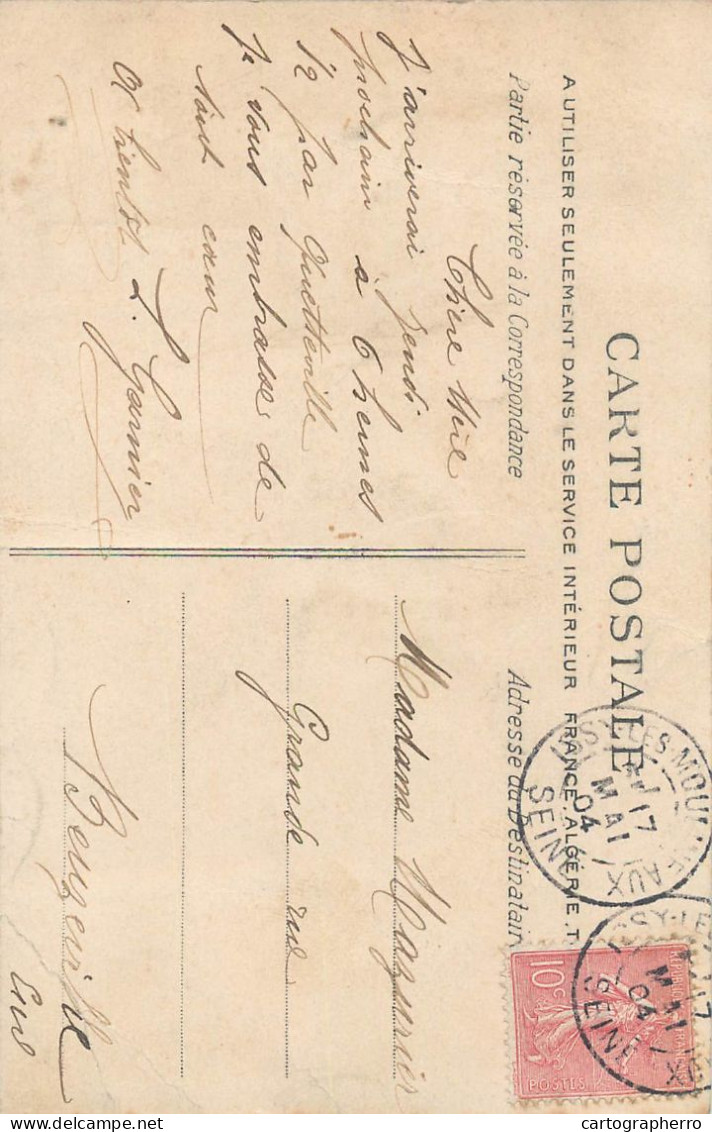 CARTE POSTALE
A UTILISER SEULEMENT DANS LE SERVICE INTÉRIEUR FRANCE, ALGÉRIE, T
Partie réservée à la Correspondance
Adresse du Destinatair
Chère Mère
J'arriverai jeudi
prochain à 6 heures
1/2 par Quetteville
Je vous embrasse de
tout cœur
a bientot L. Garnier
Madame Mazurier
Grande rue
Beuzeville
Eure
ISSY-LES-MOULINEAUX
17
MAI
04
SEINE
ISSY-LES
17
MAI
04
SEINE
10c
POSTES
cartographerro
© www.delcampe.net